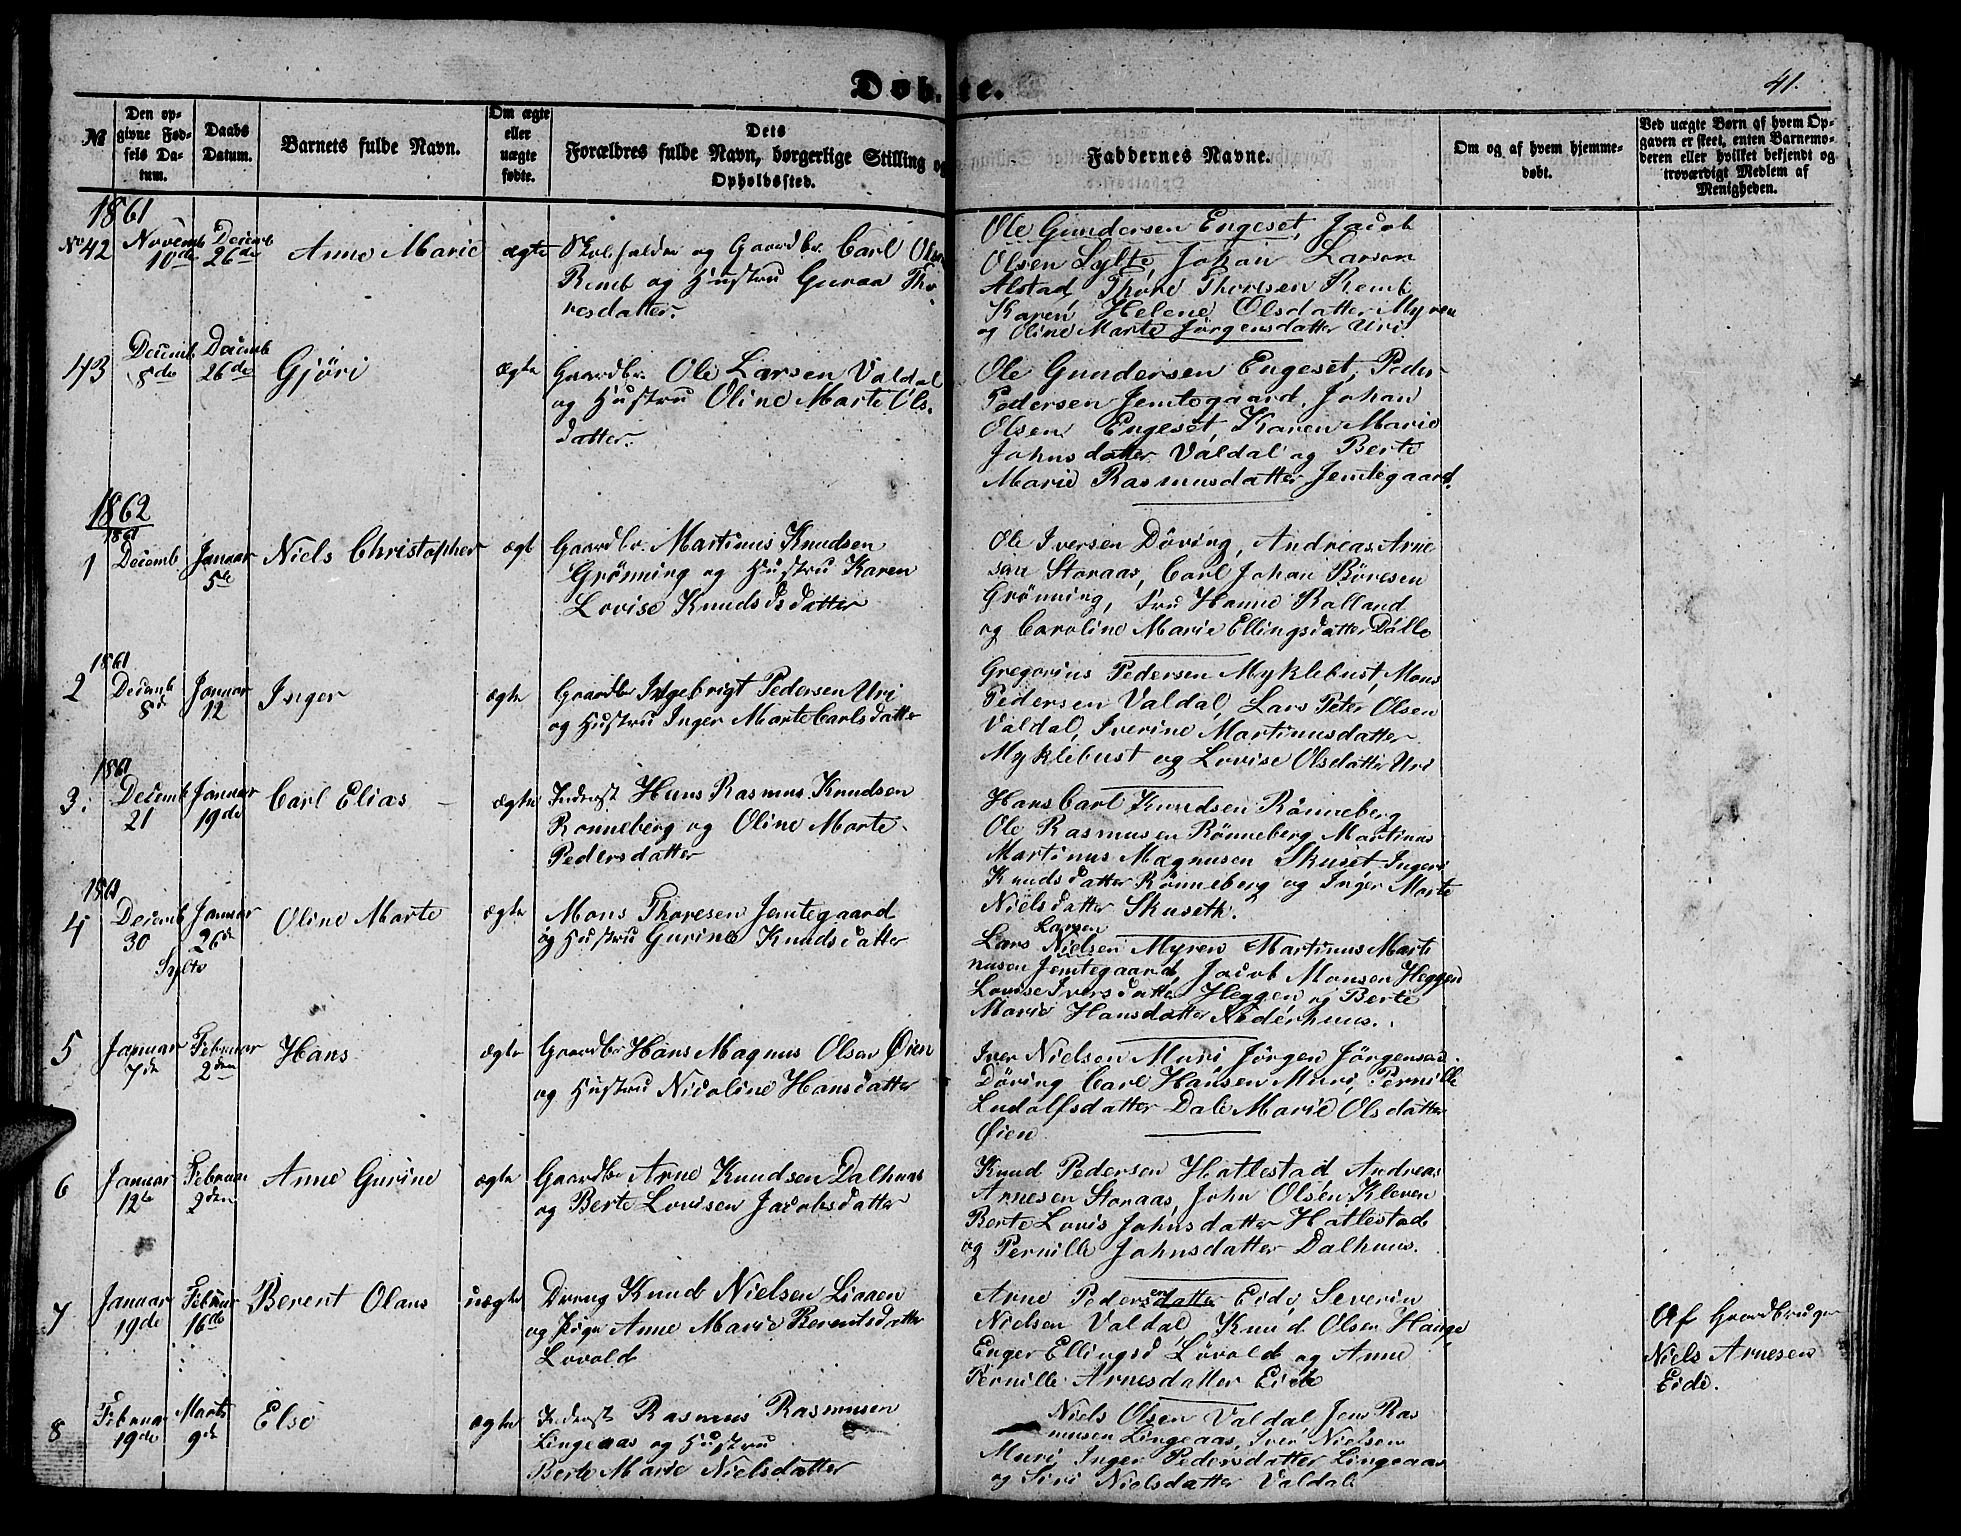 Døbte.
41.
№
Den op-
givne Fød-
sels Da-
tum.
Daabs
Datum.
Barnets fulde Navn.
Om ægte
eller
uægte
fødte.
Dets
Forældres fulde Navn, borgerlige Stilling og
Opholdssted.
Faddernes Navne.
Om og af hvem hjemme-
døbt.
Ved uægte Børn af hvem Op-
gaven er skeet, enten Barnemo-
deren eller hvilket bekjendt og
troværdigt Medlem af
Menigheden.
1861
No 42
Novemb
10de
Decemb
26de
Anne Marie
ægte
Skoleholder og Gaardbr. Carl Olsen
Remb og Hustru Guraa Tho-
resdatter.
Ole Gundersen Engeset, Jacob
Olsen Sylte, Johan Larsen
Alstad, Thore Thoresen Remb
Karen Helene Olsdatter Myren
og Oline Marte Jørgensdatter Uri
43
Decemb
8de
Decemb
26de
Gjøri
ægte
Gaardbr. Ole Larsen Valdal
og Hustru Oline Marte Ols-
datter.
Ole Gundersen Engeset, Peder
Pedersen Jemtegaard, Johan
Olsen Engeset, Karen Marie
Johnsdatter Valdal og Berte
Marie Rasmusdatter Jemtegaard.
1862
1861
1
Decemb
Januar
5te
Niels Christopher
ægte
Gaardbr. Martinus Knudsen
Grønning og Hustru Karen
Lovise Knudsdatter
Ole Iversen Døving, Andreas Arne
sen Storaas, Carl Johan Børesen
Grønning, Fru Hanne Kalland
og Caroline Marie Ellingsdatter Dalle
1861
2
Decemb
8d
Januar
12
Inger
ægte
Gaardbr Ingebrigt Pedersen Uri
og Hustru Inger Marte Carlsdatter
Gregorius Pedersen Myklebust, Mons
Pedersen Valdal, Lars Peter Olsen
Valdal, Iverine Martinusdatter
Myklebust og Lovise Olsdatter Uri
1861
3.
Decemb
21
Januar
19de
Carl Elias
ægte
Inderst Hans Rasmus Knudsen
Rønneberg og Oline Marte
Pedersdatter
Hans Carl Knudsen Rønneberg
Ole Rasmusen Rønneberg Martinus
Martinus Magnusen Skuset Ingeri
Knudsdatter Rønneberg og Inger Marte
Nielsdatter Skuseth.
1861
4
Decemb
30
Sylte
Januar
26d
Oline Marte
ægte
Mons Thoresen Jemtegaard
og Hustru Gurine Knudsdatter
Larsen
Lars Nielsen Myren Martinus Marti
nusen Jemtegaard, Jacob Monsen Heggen
Lovise Iversdatter Heggen og Berte
Marie Hansdatter Nederhuus.
5
Januar
7de
Februar
2den
Hans
ægte
Gaardbr Hans Magnus Olsen Øien
og Hustru Nicoline Hansdatter
Iver Nielsen Muri Jørgen Jørgensen
Døving Carl Hansen Muri, Pernille
Ludolfsdatter Dale Marie Olsdatter
Øien
6
Januar
12te
Februar
2den
Anne Gurine
ægte
Gaardbr Arne Knudsen Dalhuus
og Berte Lovisen Jacobsdatter
Knud Pedersen Hatlestad Andreas
Arnesen Storaas, John Olsen Kleven
Berte Lovis Johnsdatter Hatlestad
og Pernille Johnsdatter Dalhuus.
7
Januar
19de
Februar
16de
Berent Olaus
uægte
Dreng Knud Nielsen Liaaen
og Pige Anne Marie Berentsdatter
Lovold
Arne Pedersen Eide, Severin
Nielsen Valdal, Knud Olsen Hauge
Enger Ellingsd Løvold og Anne
Pernille Arnesdatter Eide
Af Gaardbruger
Niels Arnesen
Eide.
8
Februar
19de
Marts
9de
Else
ægte
Inderst Rasmus Rasmusen
Lingeaas og Hustru
Berte Marie Nielsdatter
Niels Olsen Valdal Jens Ras
musen Lingeaas, Iver Nielsen
Muri, Inger Pedersdatter Lingeaas
og Siri Nielsdatter Valdal